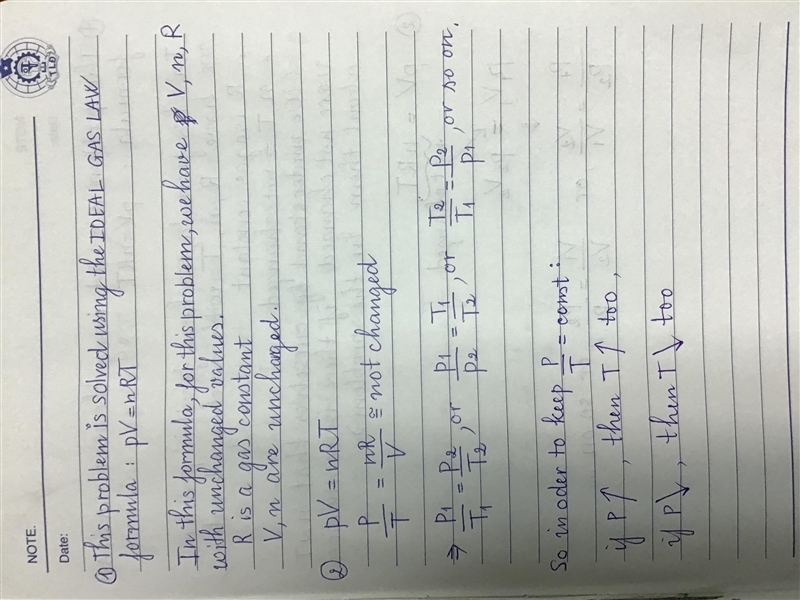 NOTE.
Date:
① This problem is solved using the IDEAL GAS LAW
formula : pV = nRT
In this formula, for this problem, we have V, n, R
with unchanged values.
R is a gas constant
V, n are unchanged.
② pV = nRT
P/T = nR/V ≅ not changed
⇒ P1/T1 = P2/T2, or P1/P2 = T1/T2, or T2/T1 = P2/P1, or so on.
So in oder to keep P/T = const :
if P↑, then T↑ too,
if P↘, then T↘ too